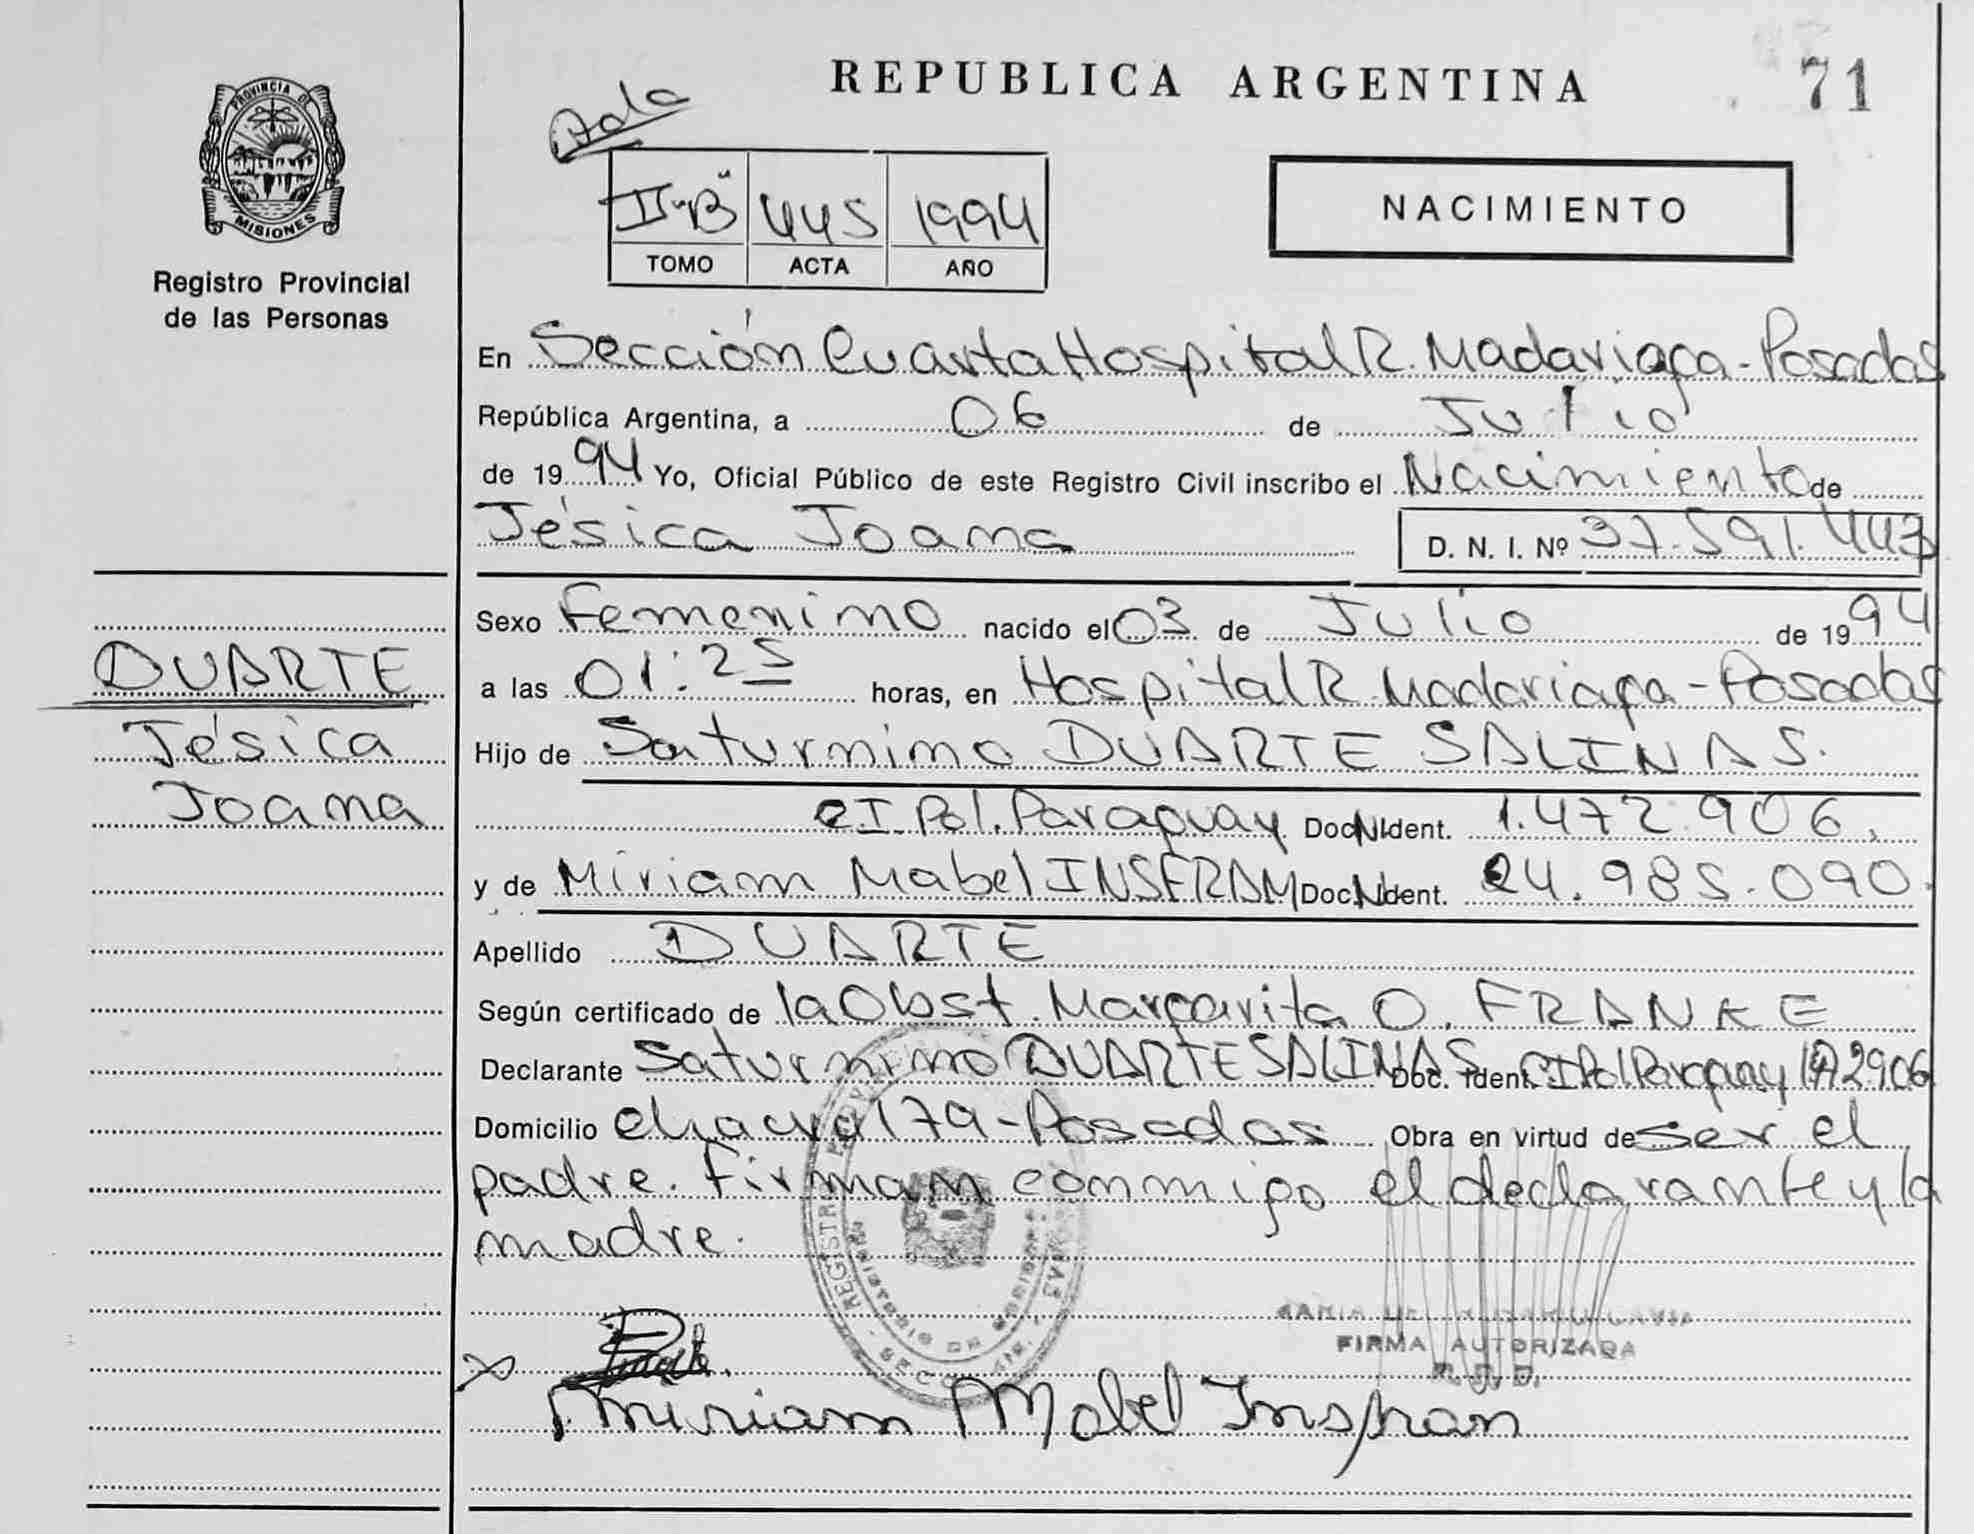 REPUBLICA ARGENTINA
71
PROVINCIA DE
MISIONES
Registro Provincial
de las Personas
II "B" 445 1994
TOMO ACTA AÑO
NACIMIENTO
En Sección Cuarta Hospital R. Madariaga - Posadas
República Argentina, a 06 de Julio
de 1994 Yo, Oficial Público de este Registro Civil inscribo el Nacimiento de
Jésica Joana D. N. I. Nº 37.591.443
Sexo Femenino nacido el 03 de Julio de 1994
a las 01:25 horas, en Hospital R. Madariaga - Posadas
Hijo de Saturnino DUARTE SALINAS.
CI. Pol. Paraguay Doc. Ident. 1.472.906.
y de Miriam Mabel INSFRAN Doc. Ident. 24.985.090.
Apellido DUARTE
Según certificado de la Obst. Margarita O. FRANKE
Declarante Saturnino DUARTE SALINAS Doc. Ident. CI Pol Paraguay 1472906
Domicilio Chacra 179 - Posadas Obra en virtud de ser el
padre. Firman conmigo el declarante y la
madre.
DUARTE
Jésica
Joana
FIRMA AUTORIZADA
Miriam Mabel Insfran